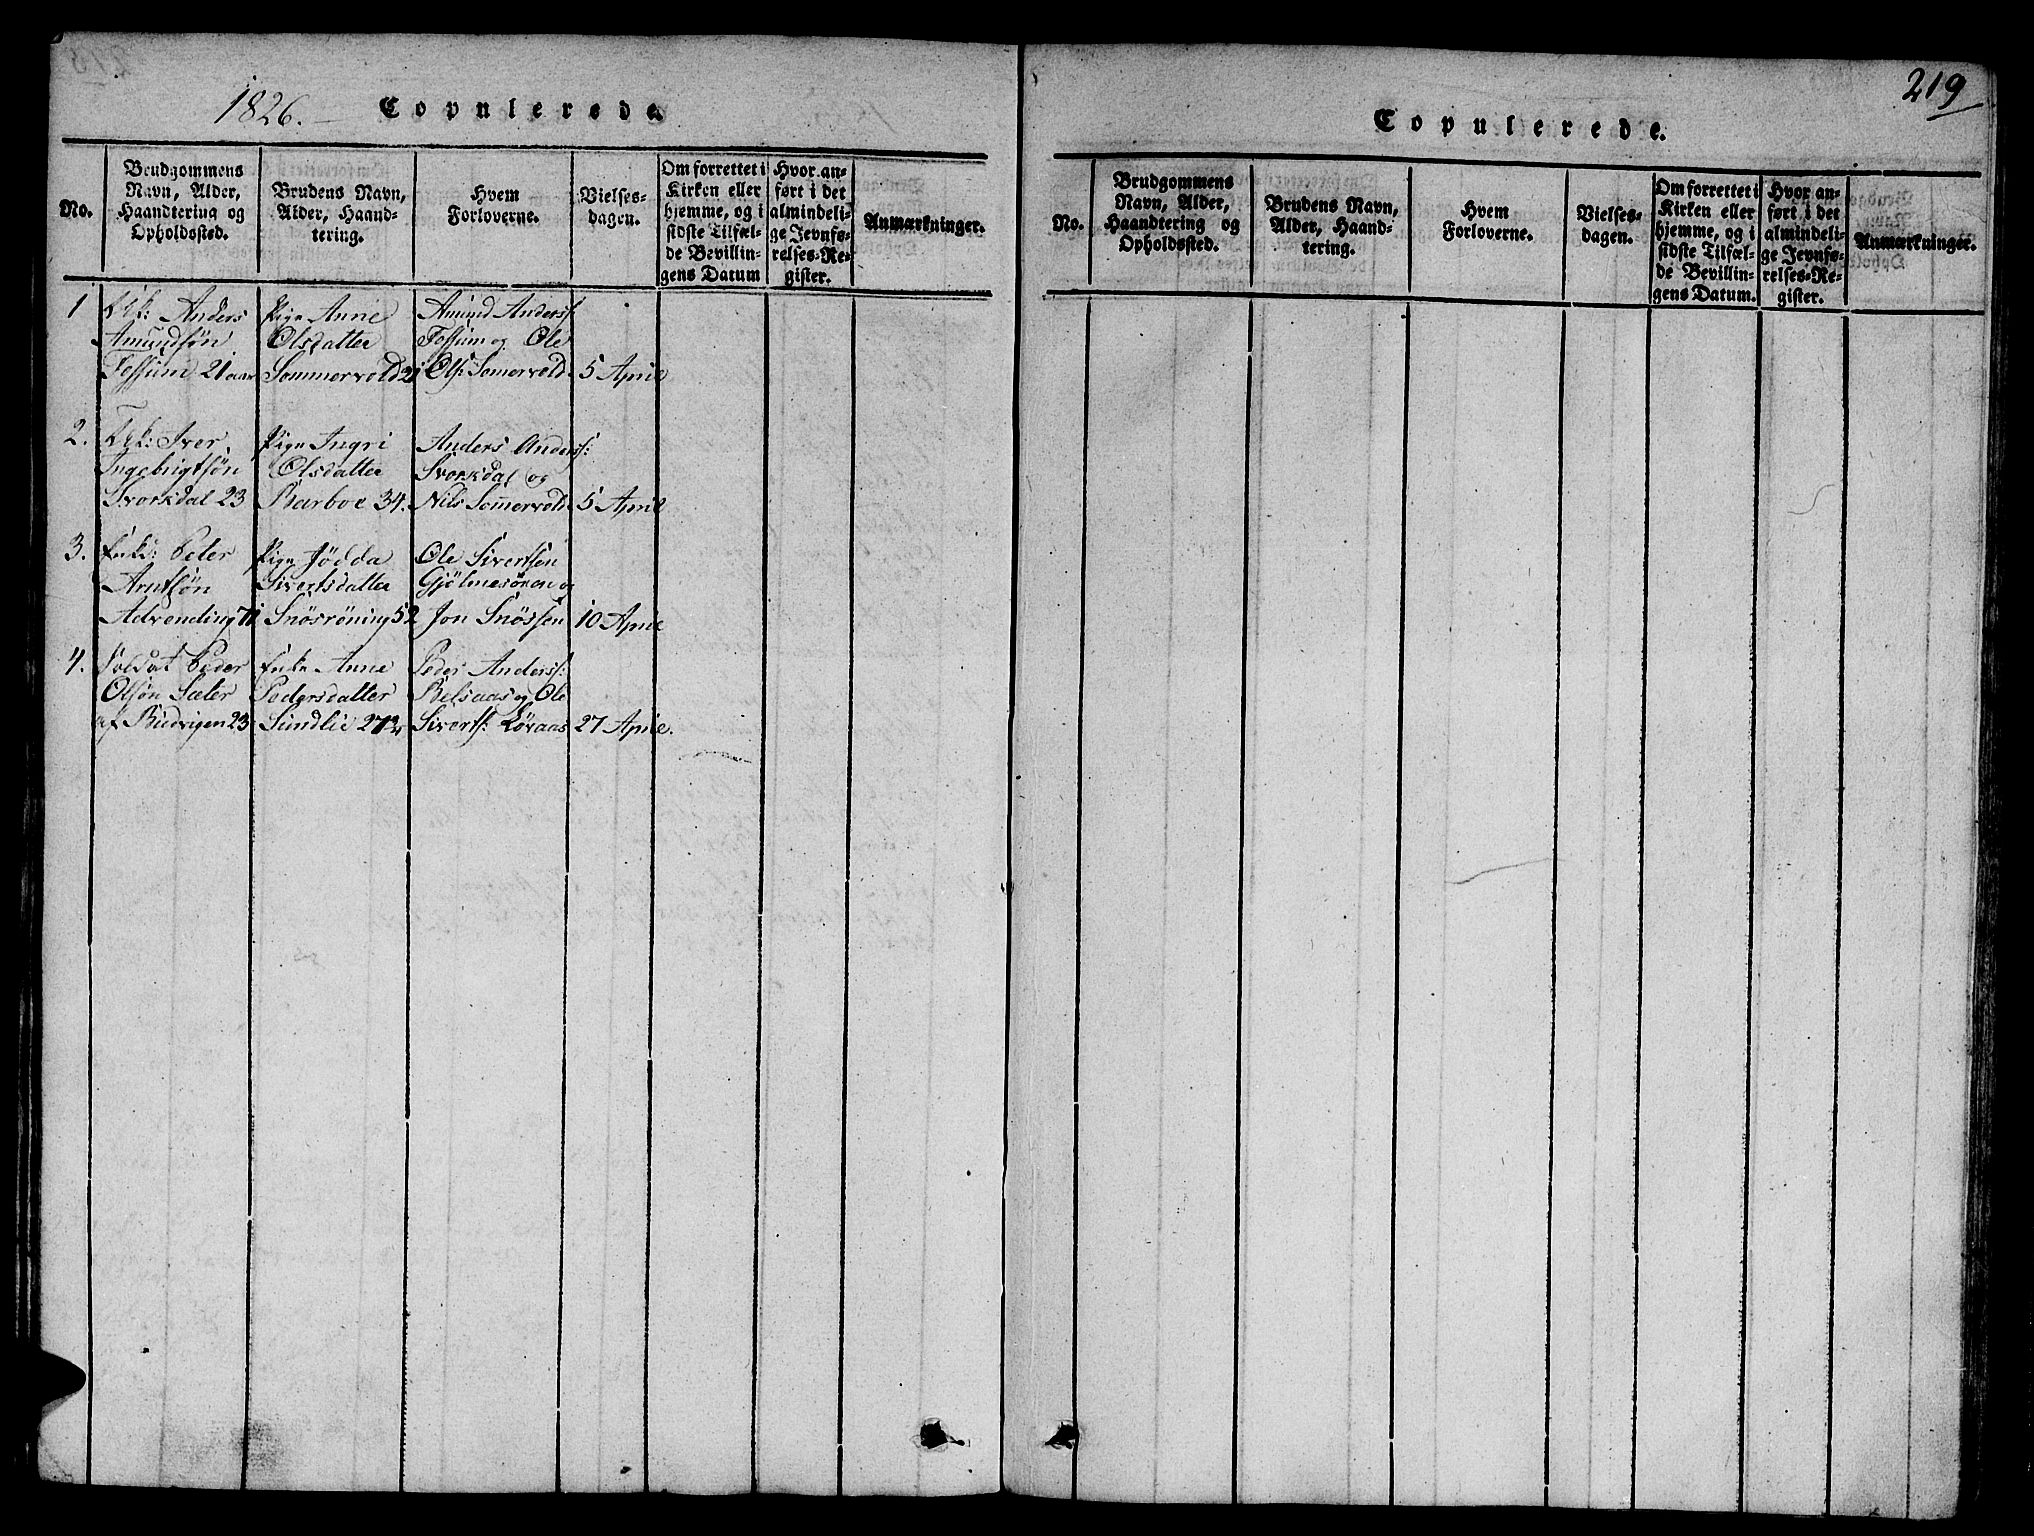 1826. Copulerede.
No.
Brudgommens
Navn, Alder,
Haandtering og
Opholdssted.
Brudens Navn,
Alder, Haand-
tering.
Hvem
Forloverne.
Vielses-
dagen.
Om forrettet i
Kirken eller
hjemme, og i
sidste Tilfæl-
de Bevillin-
gens Datum
Hvor an-
ført i det
almindeli-
ge Jevnfø-
relses-Re-
gister.
Anmærkninger.
1
Anders
Amundsøn
Fossum 21 aar
Pige Anne
Olsdatter
Sommervold 21
Amund Anders:
Fossum og Ole
Ols: Somervold
5 April
2.
Iver
Ingebrigtsøn
Svorkdal 23
Pige Ingri
Olsdatter
Barboe 34.
Anders Anders:
Svorkdal og
Nils Somervold
5 April
3.
Enk: Peter
Arntsøn
Adrønding 71
Pige Jødda
Sivertsdatter
Snøsrøning 52
Ole Sivertsen
Gjølmesøran og
Jon Snøssen
10 April
4.
Soldat Peder
Olsøn Sæter
af Budvigen 23
Enke Anne
Pedersdatter
Sundlie 27
Peder Anders:
Belsaas og Ole
Siverts: Løraas
27 April.
219
Copulerede.
No.
Brudgommens
Navn, Alder,
Haandtering og
Opholdssted.
Brudens Navn,
Alder, Haand-
tering.
Hvem
Forloverne.
Vielses-
dagen.
Om forrettet i
Kirken eller
hjemme, og i
sidste Tilfæl-
de Bevillin-
gens Datum.
Hvor an-
ført i det
almindeli-
ge Jevnfø-
relses-Re-
gister.
Anmærkninger.